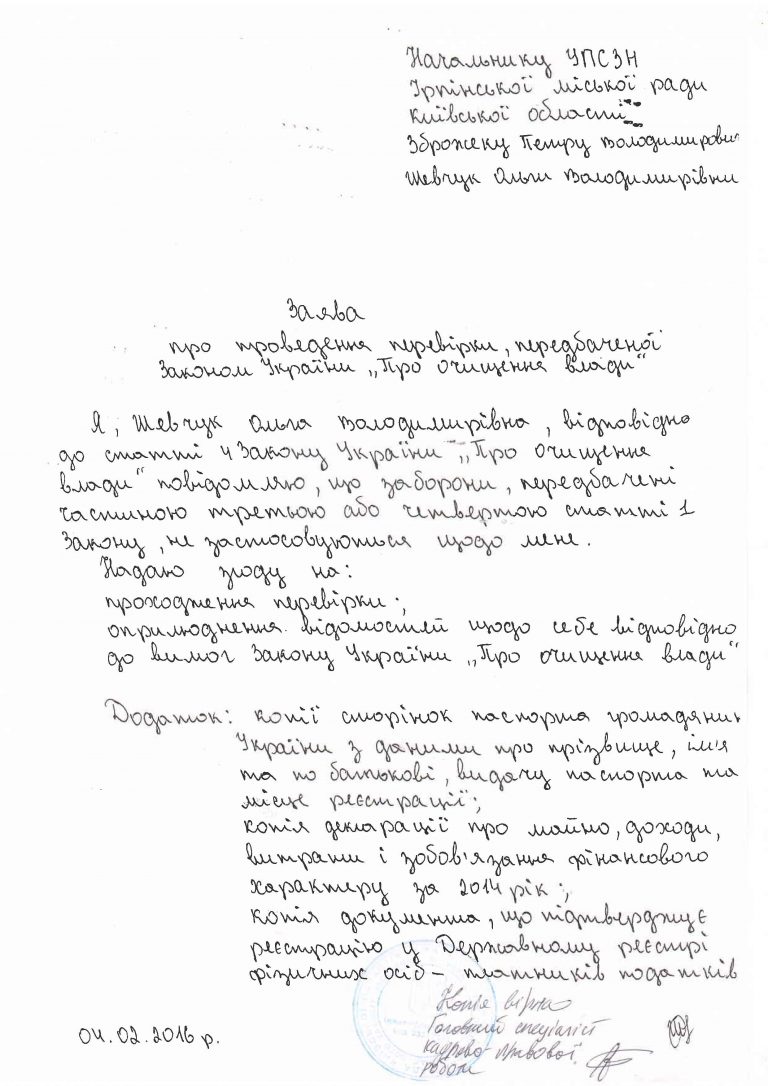 Начальнику УПСЗН
Ірпінської міської ради
Київської області
Зброжеку Петру Володимирович
Шевчук Ольги Володимирівни
Заява
про проведення перевірки, передбаченої
Законом України „Про очищення влади"
Я, Шевчук Ольга Володимирівна, відповідно
до статті 4 Закону України „Про очищення
влади" повідомляю, що заборони, передбачені
частиною третьою або четвертою статті 1
Закону, не застосовуються щодо мене.
Надаю згоду на:
проходження перевірки;
оприлюднення відомостей щодо себе відповідно
до вимог Закону України „Про очищення влади"
Додаток: копії сторінок паспорта громадянин
України з даними про прізвище, ім'я
та по батькові, видачу паспорта та
місце реєстрації;
копія декларації про майно, доходи,
витрати і зобов'язання фінансового
характеру за 2014 рік;
копія документа, що підтверджує
реєстрацію у Державному реєстрі
фізичних осіб – платників податків
Копія вірна
Головний спеціаліст
кадрово-правової
роботи
04.02.2016 р.